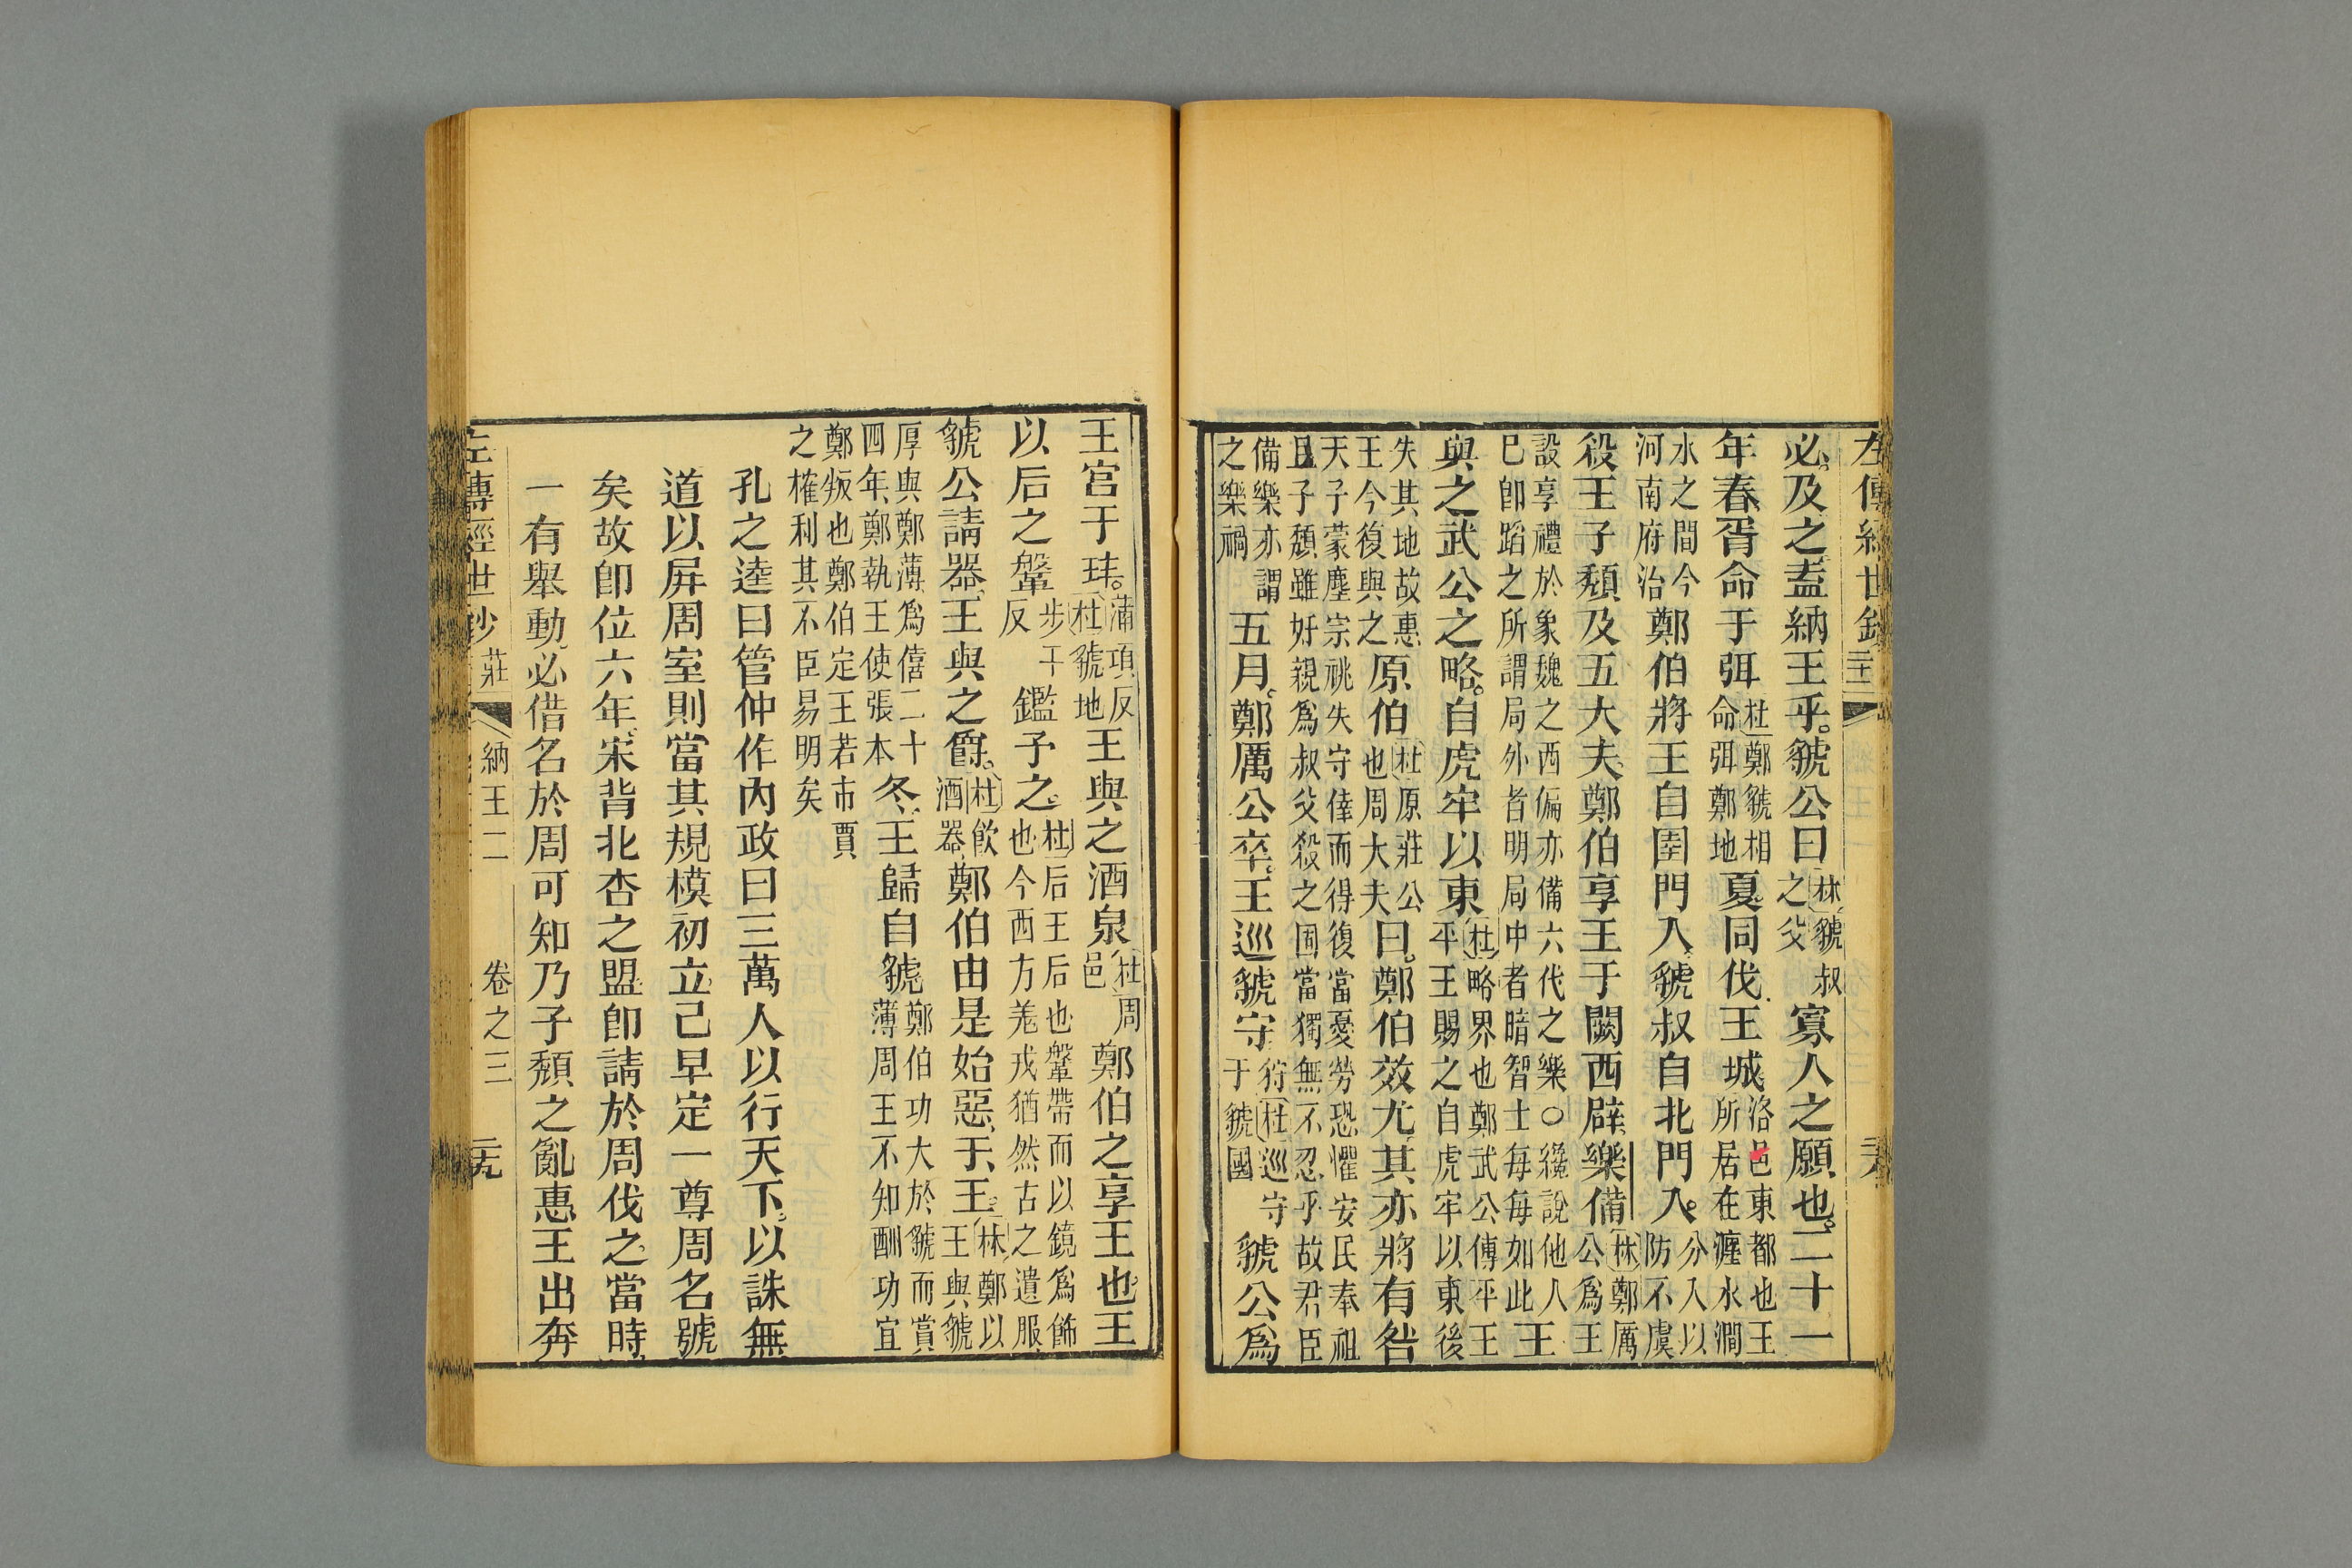 必及之盍納王乎虢公曰林虢叔之父寡人之願也二十一
年春胥命于弭杜鄭虢相命弭鄭地夏同伐王城洛邑東都也王所居在瀍水澗
水之間今河南府治鄭伯將王自圉門入虢叔自北門入分入以防不虞
殺王子頹及五大夫鄭伯享王于闕西辟樂備林鄭厲公爲王
設享禮於象魏之西偏亦備六代之樂○纔說他人已卽蹈之所謂局外者明局中者暗智士每每如此王
與之武公之略自虎牢以東杜略界也鄭武公傳平王平王賜之自虎牢以東後
失其地故惠王今復與之原伯杜原莊公也周大夫曰鄭伯效尤其亦將有咎
天子蒙塵宗祧失守倖而得復當憂勞恐懼安民奉祖且子頹雖奸親爲叔父殺之固當獨無不忍乎故君臣
備樂亦謂之樂禍五月鄭厲公卒王巡虢守狩杜巡守于虢國虢公爲
王宮于玤蒲項反杜虢地王與之酒泉杜周邑鄭伯之享王也王
以后之鞶步干反鑑予之杜后王后也鞶帶而以鏡爲飾也今西方羌戎猶然古之遺服
虢公請器王與之爵杜飮酒器鄭伯由是始惡于王林鄭以王與虢
厚與鄭薄爲僖二十四年鄭執王使張本冬王歸自虢鄭伯功大於虢而賞薄周王不知酬功宜
鄭叛也鄭伯定王若市賈之權利其不臣易明矣
孔之逵曰管仲作內政曰三萬人以行天下以誅無
道以屛周室則當其規模初立己早定一尊周名號
矣故卽位六年宋背北杏之盟卽請於周伐之當時
一有舉動必借名於周可知乃子頹之亂惠王出奔
左傳經世鈔 莊 納王二 卷之三 二十九